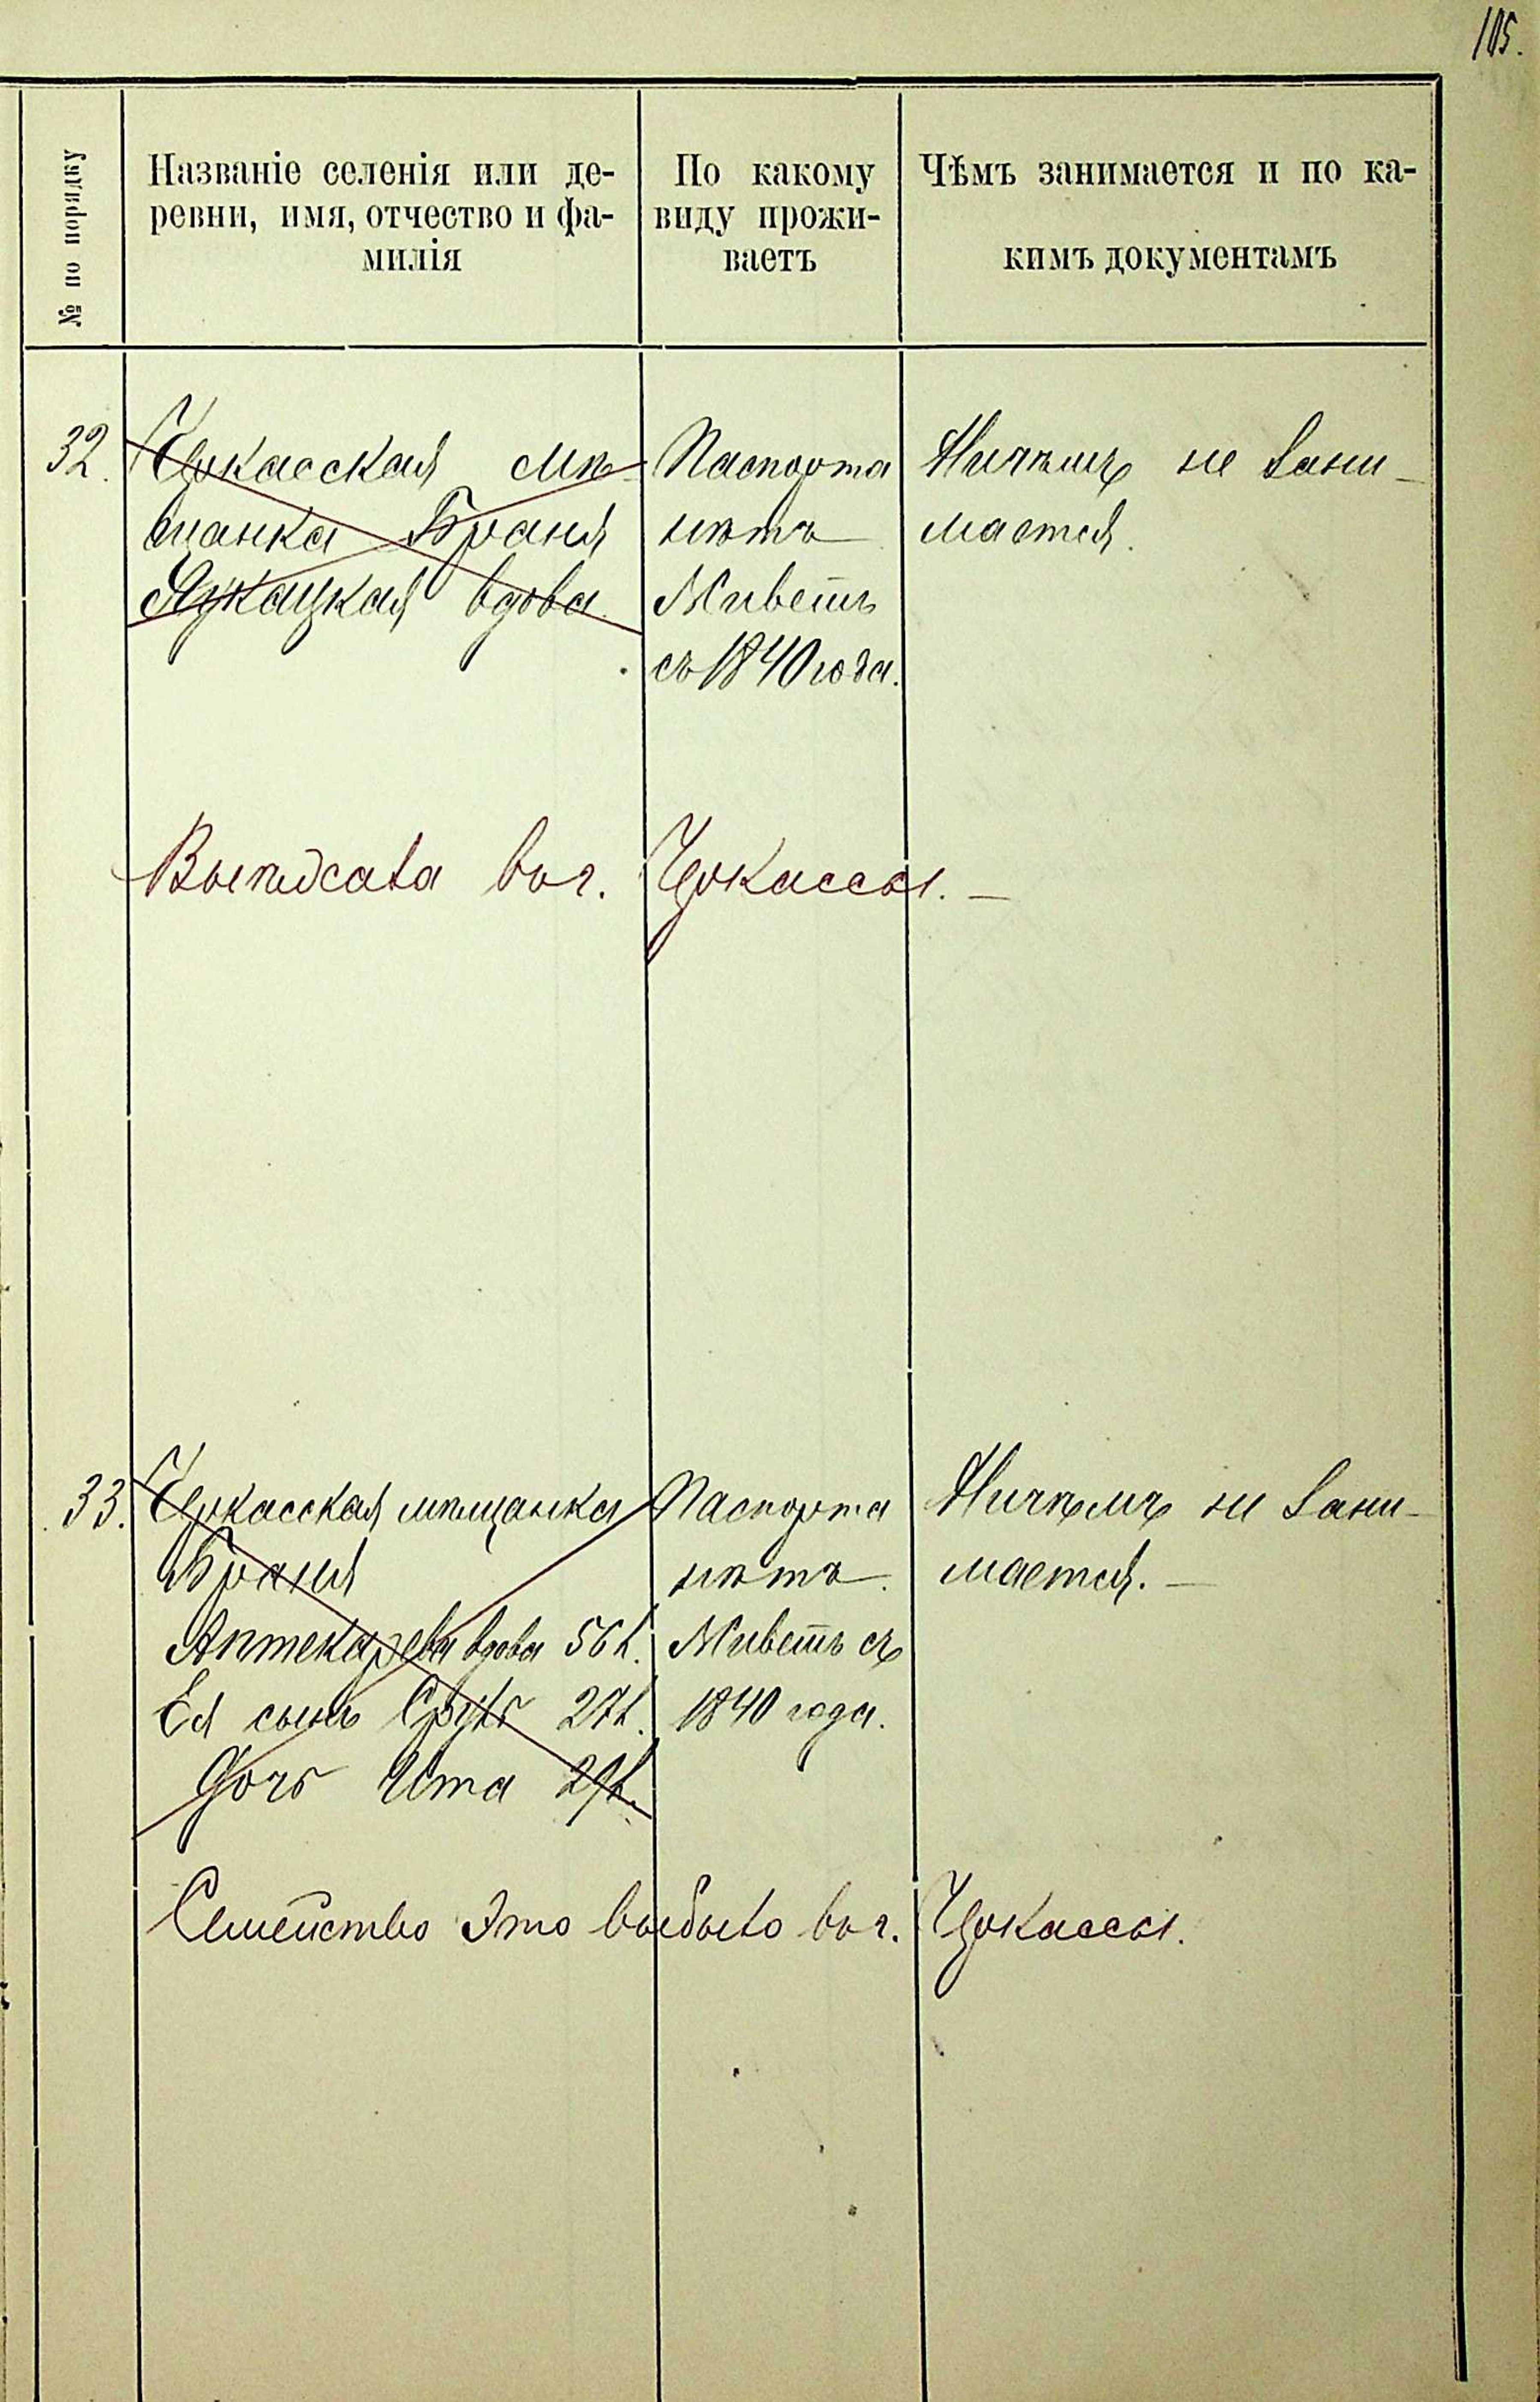 105.
№ по порядку
Названіе селенія или де-
ревни, имя, отчество и фа-
милія
По какому
виду прожи-
ваетъ
Чѣмъ занимается и по ка-
кимъ документамъ
32.
Черкасская мѣ-
щанка Браня
вдова
Паспорта
нѣтъ
Живетъ
съ 1840 года.
Ничѣмъ не зани-
мается.
въ г. Черкассы. —
33.
Черкасская мѣщанка
Браня
Аптекарева вдова 56 л.
Ея сынъ Сруль 27 л.
Дочь Ита
Паспорта
нѣтъ.
Живетъ съ
1840 года.
Ничѣмъ не зани-
мается. —
Семейство это выбыло въ г. Черкассы.